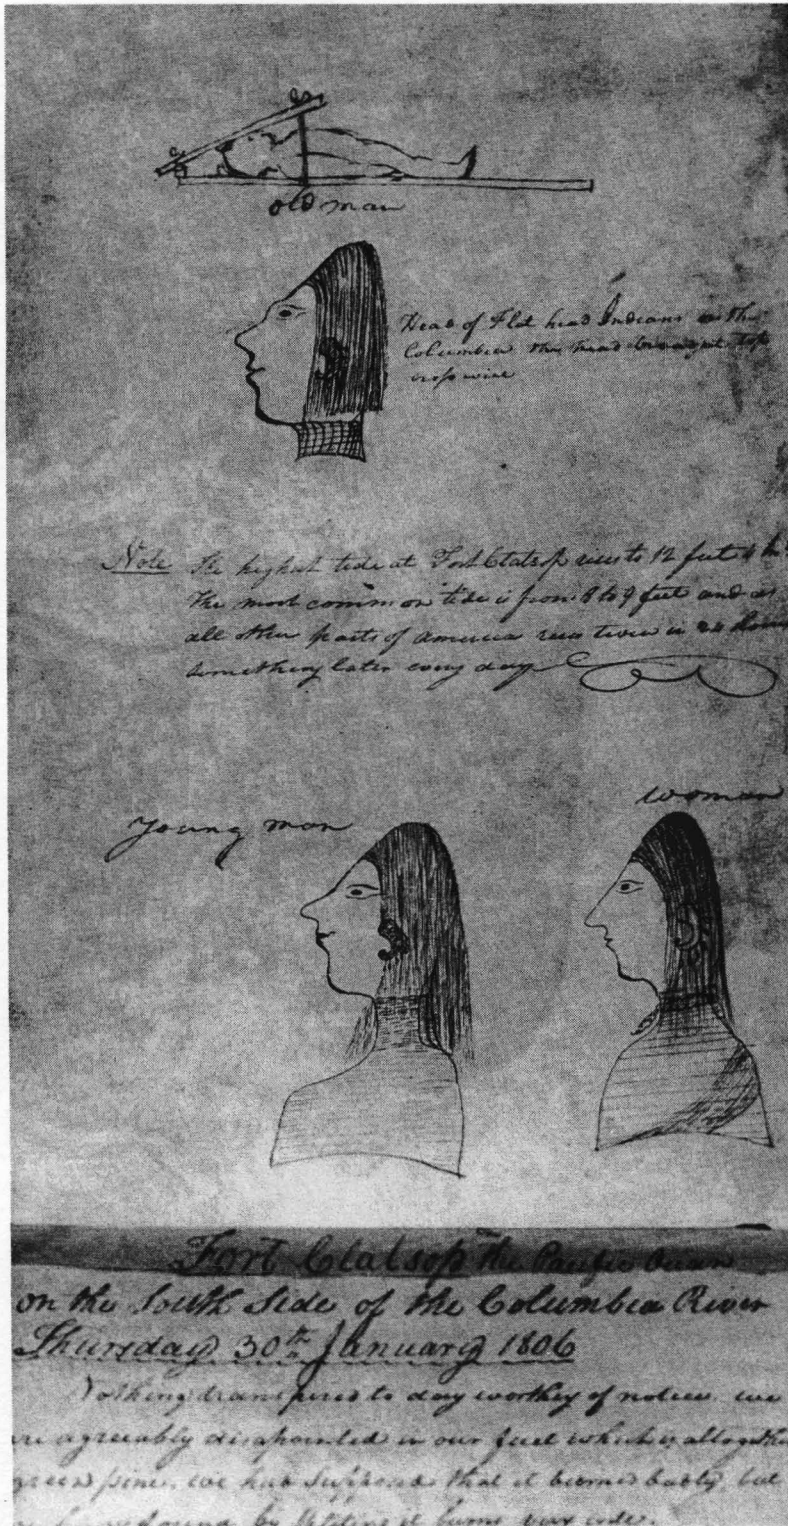 old man
Head of Flat head Indians on the
Columbia the head brought top
cross wise
Note The highest tide at Fort Clatsop rises to 12 feet
The most common tide is from 8 to 9 feet and as
all other parts of america rises twice in 24 hours
something later every day
young man
woman
Fort Clatsop the Pacific Ocean
on the South Side of the Columbia River
Thursday 30th January 1806
Nothing transpired to day worthey of notice. we
are agreeably disapointed in our fuel which is altogether
green pine. we had supposed that it burned badly, but
by it burns very well.